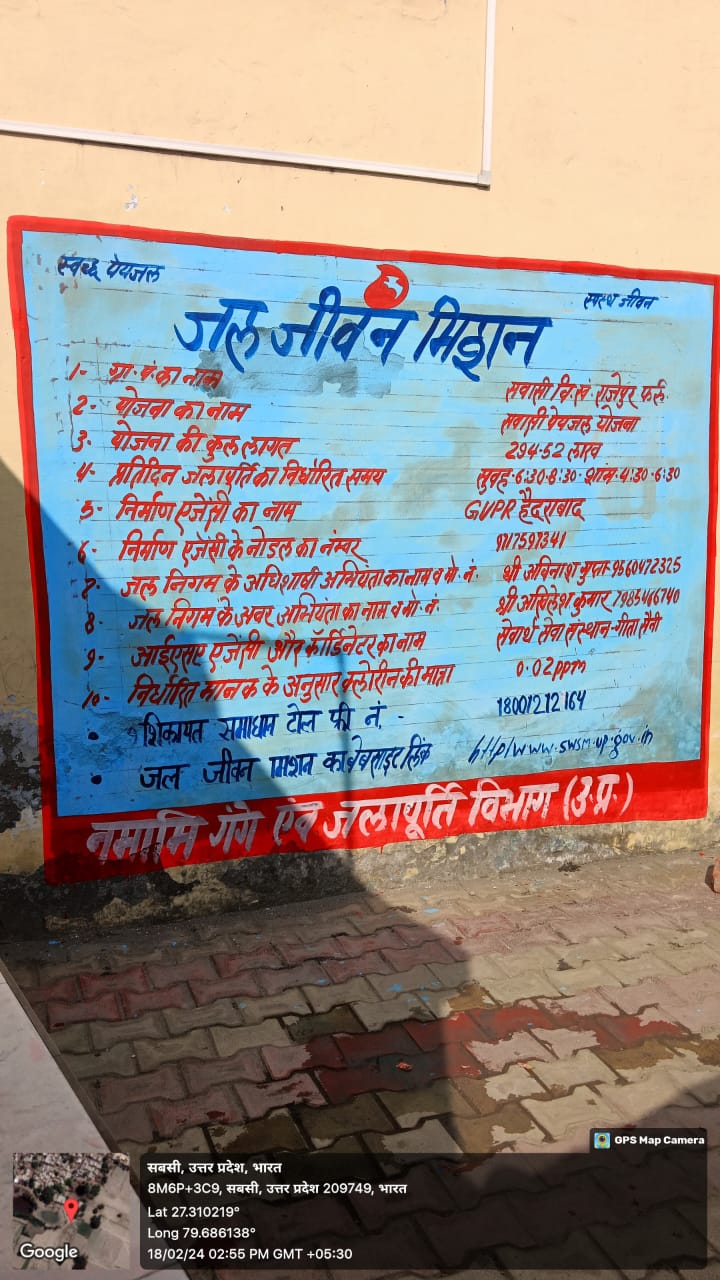 स्वच्छ पेयजल
स्वस्थ जीवन
जल जीवन मिशन
1- ग्रा. पं. का नाम सवासी वि.खं. राजेपुर फर्रु.
2- योजना का नाम सवासी पेयजल योजना
3- योजना की कुल लागत 294-52 लाख
4- प्रतिदिन जलापूर्ति का निर्धारित समय सुवह-6:30-8:30-शांम-4:30-6:30
5- निर्माण एजेंसी का नाम GVPR हैदराबाद
6- निर्माण एजेंसी के नोडल का नंम्वर
7- जल निगम के अधिशाषी अभियंता का नाम व मो. नं. श्री अविनाश गुप्ता-9560472325
8- जल निगम के अवर अभियंता का नाम व मो. नं. श्री अखिलेश कुमार 7985466740
9- आईएसए एजेंसी और कॉर्डिनेटर का नाम सेवार्थ सेवा संस्थान-गीता सैनी
10- निर्धारित मानक के अनुसार क्लोरीन की मात्रा 0.02ppm
• शिकायत समाधान टोल फ्री नं. - 18001212164
• जल जीवन मिशन का वेबसाइट लिंक http/www.swsm.up.gov.in
नमामि गंगे एंव जलापूर्ति विभाग (उ.प्र.)
GPS Map Camera
सबसी, उत्तर प्रदेश, भारत
8M6P+3C9, सबसी, उत्तर प्रदेश 209749, भारत
Lat 27.310219°
Long 79.686138°
18/02/24 02:55 PM GMT +05:30
Google